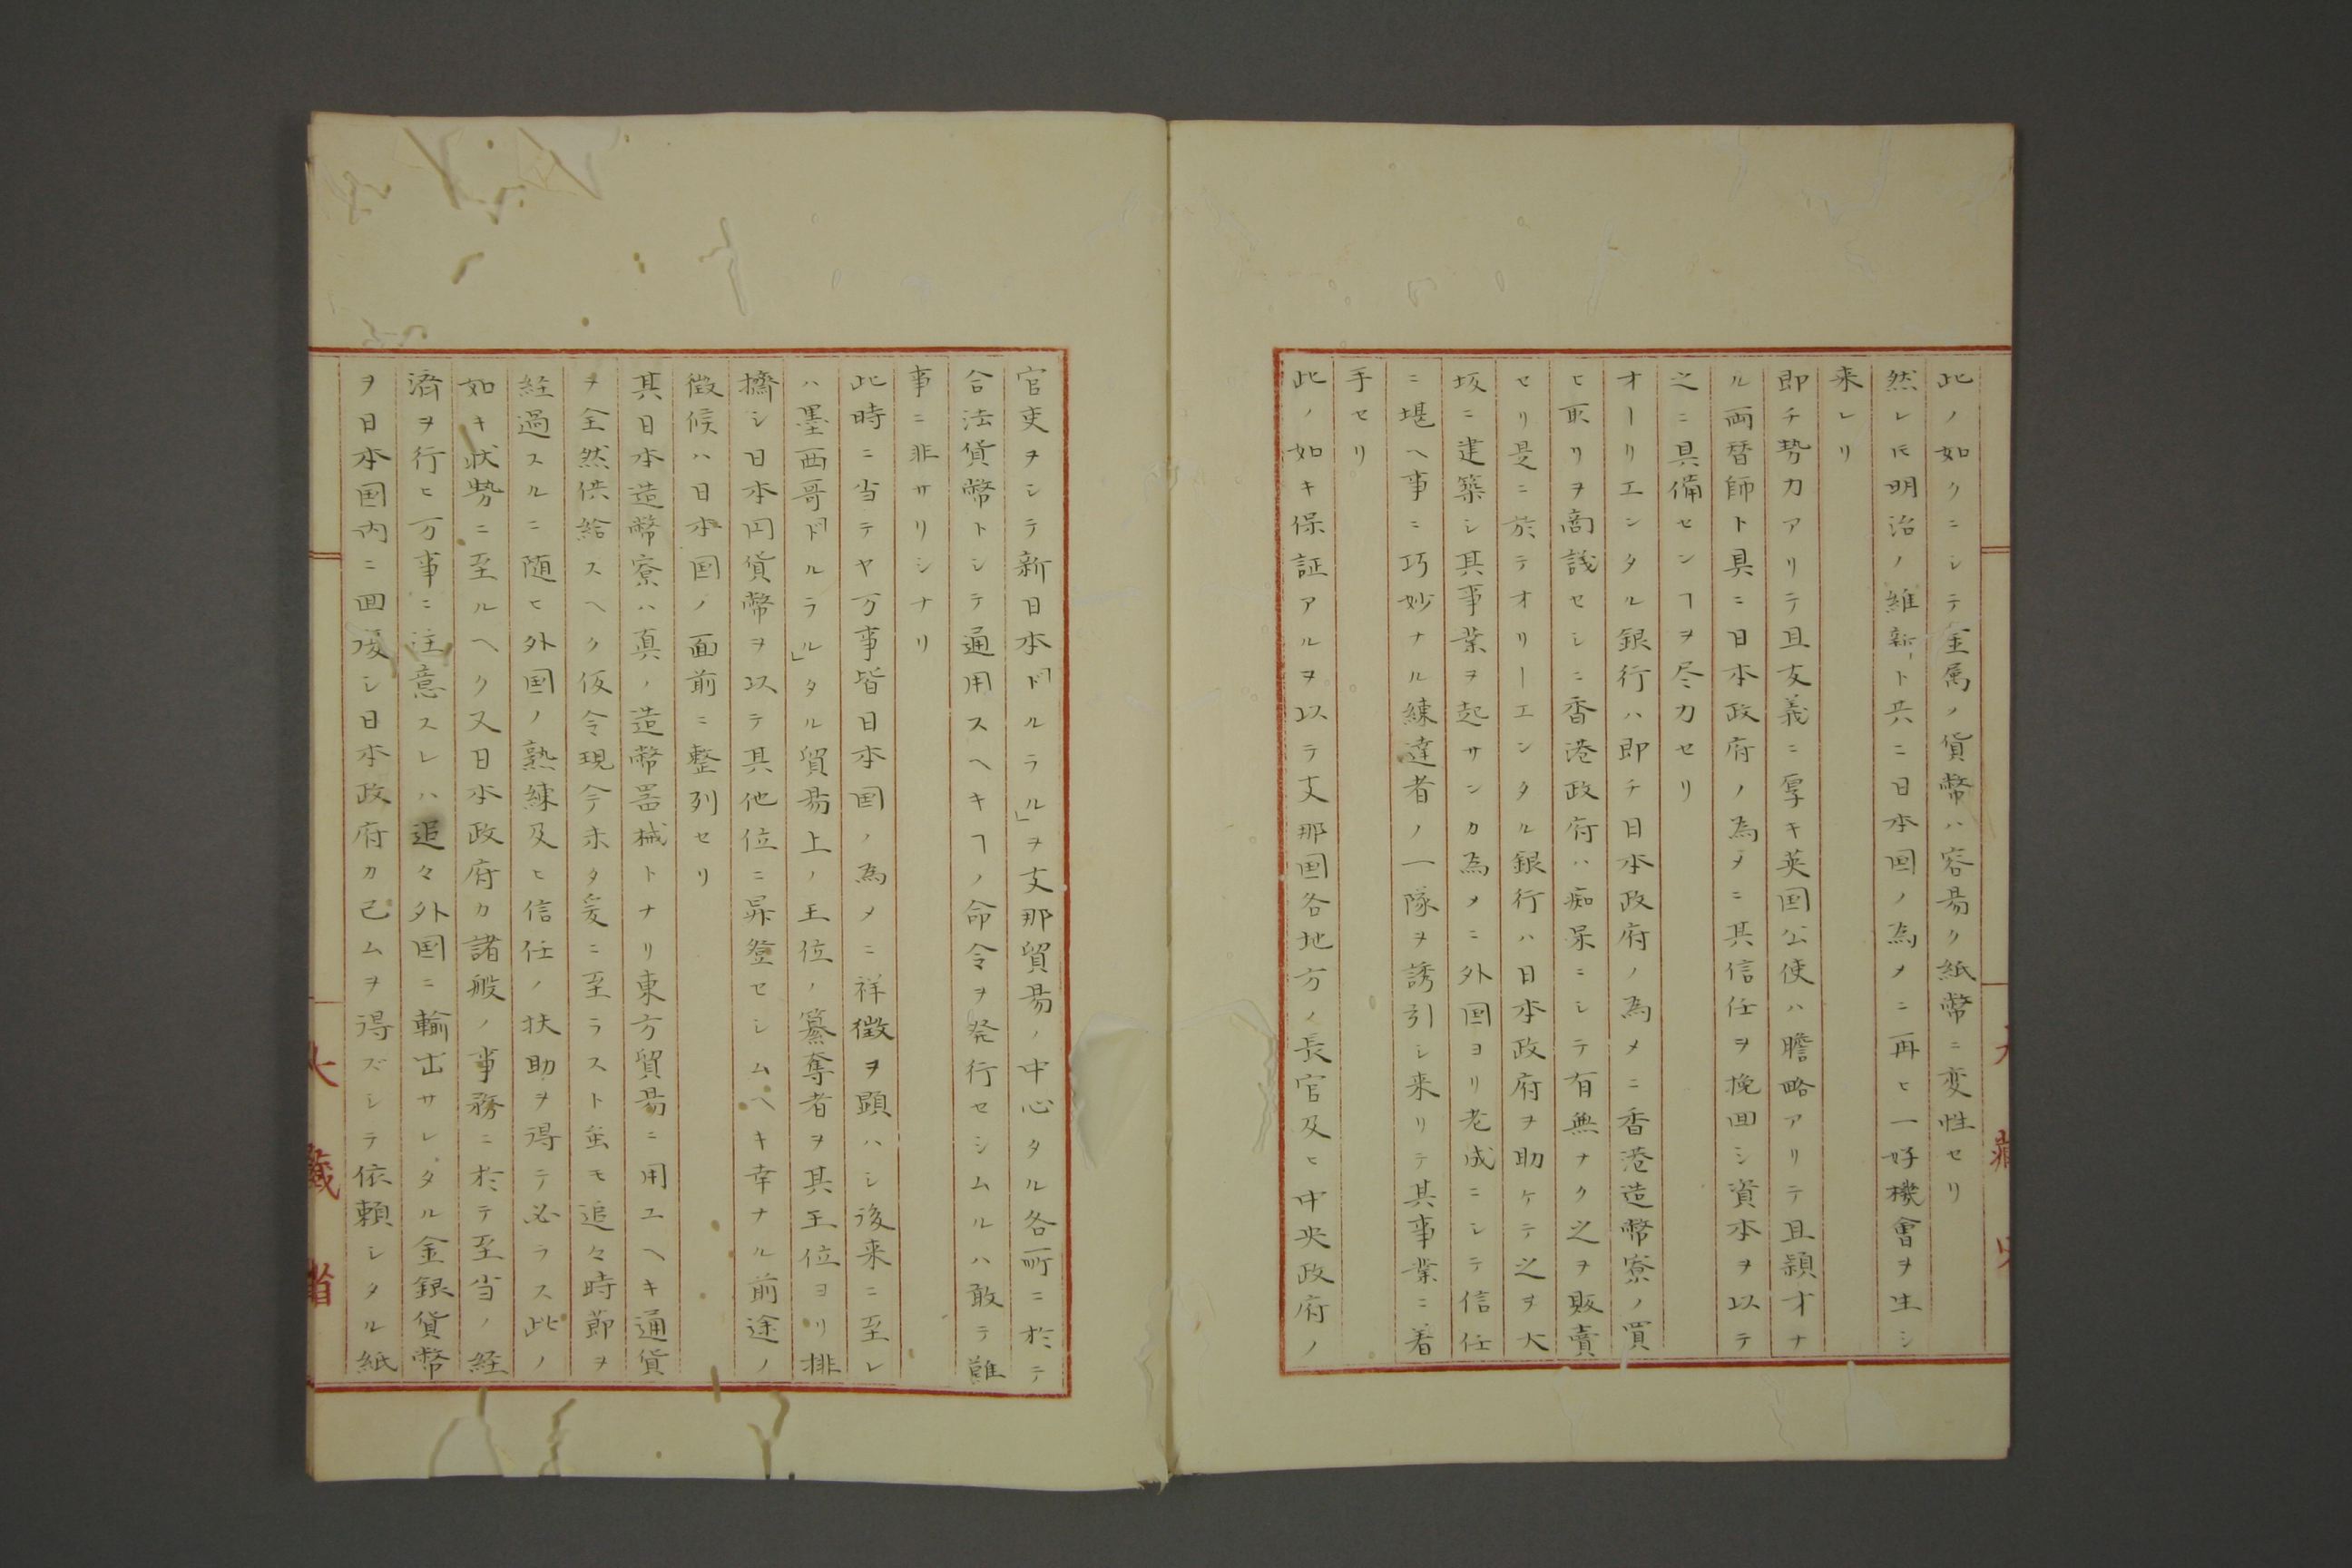 此ノ如クニシテ金属ノ貨幣ハ容易ク紙幣ニ変性セリ
然レ𪜈明治ノ維新ト共ニ日本国ノ為メニ再ヒ一好機會ヲ生シ
来レリ
即チ勢力アリテ且友義ニ厚キ英国公使ハ膽略アリテ且頴才ナ
ル両替師ト具ニ日本政府ノ為メニ其信任ヲ挽回シ資本ヲ以テ
之ニ具備センヿヲ尽力セリ
オーリエンタル銀行ハ即チ日本政府ノ為メニ香港造幣寮ノ買
ヒ取リヲ商議セシニ香港政府ハ痴呆ニシテ有無ナク之ヲ販賣
セリ是ニ於テオリーエンタル銀行ハ日本政府ヲ助ケテ之ヲ大
坂ニ建築シ其事業ヲ起サンカ為メニ外国ヨリ老成ニシテ信任
ニ堪ヘ事ニ巧妙ナル練達者ノ一隊ヲ誘引シ来リテ其事業ニ着
手セリ
此ノ如キ保証アルヲ以テ支那国各地方ノ長官及ヒ中央政府ノ
官吏ヲシテ新日本「ドルラル」ヲ支那貿易ノ中心タル各所ニ於テ
合法貨幣トシテ通用スヘキヿノ命令ヲ発行セシムルハ敢テ難
事ニ非サリシナリ
此時ニ当テヤ万事皆日本国ノ為メニ祥徴ヲ顕ハシ後来ニ至レ
ハ墨西哥「ドルラル」タル貿易上ノ王位ノ簒奪者ヲ其王位ヨリ排
擠シ日本円貨幣ヲ以テ其他位ニ昇登セシムヘキ幸ナル前途ノ
徴候ハ日本国ノ面前ニ整列セリ
其日本造幣寮ハ真ノ造幣器械トナリ東方貿易ニ用ユヘキ通貨
ヲ全然供給スヘク仮令現今未タ爰ニ至ラスト虽モ追々時節ヲ
経過スルニ随ヒ外国ノ熟練及ヒ信任ノ扶助ヲ得テ必ラス此ノ
如キ状勢ニ至ルヘク又日本政府カ諸般ノ事務ニ於テ至当ノ経
済ヲ行ヒ万事ニ注意スレハ追々外国ニ輸出サレタル金銀貨幣
ヲ日本国内ニ回復シ日本政府カ已ムヲ得ズシテ依頼シタル紙
大藏省